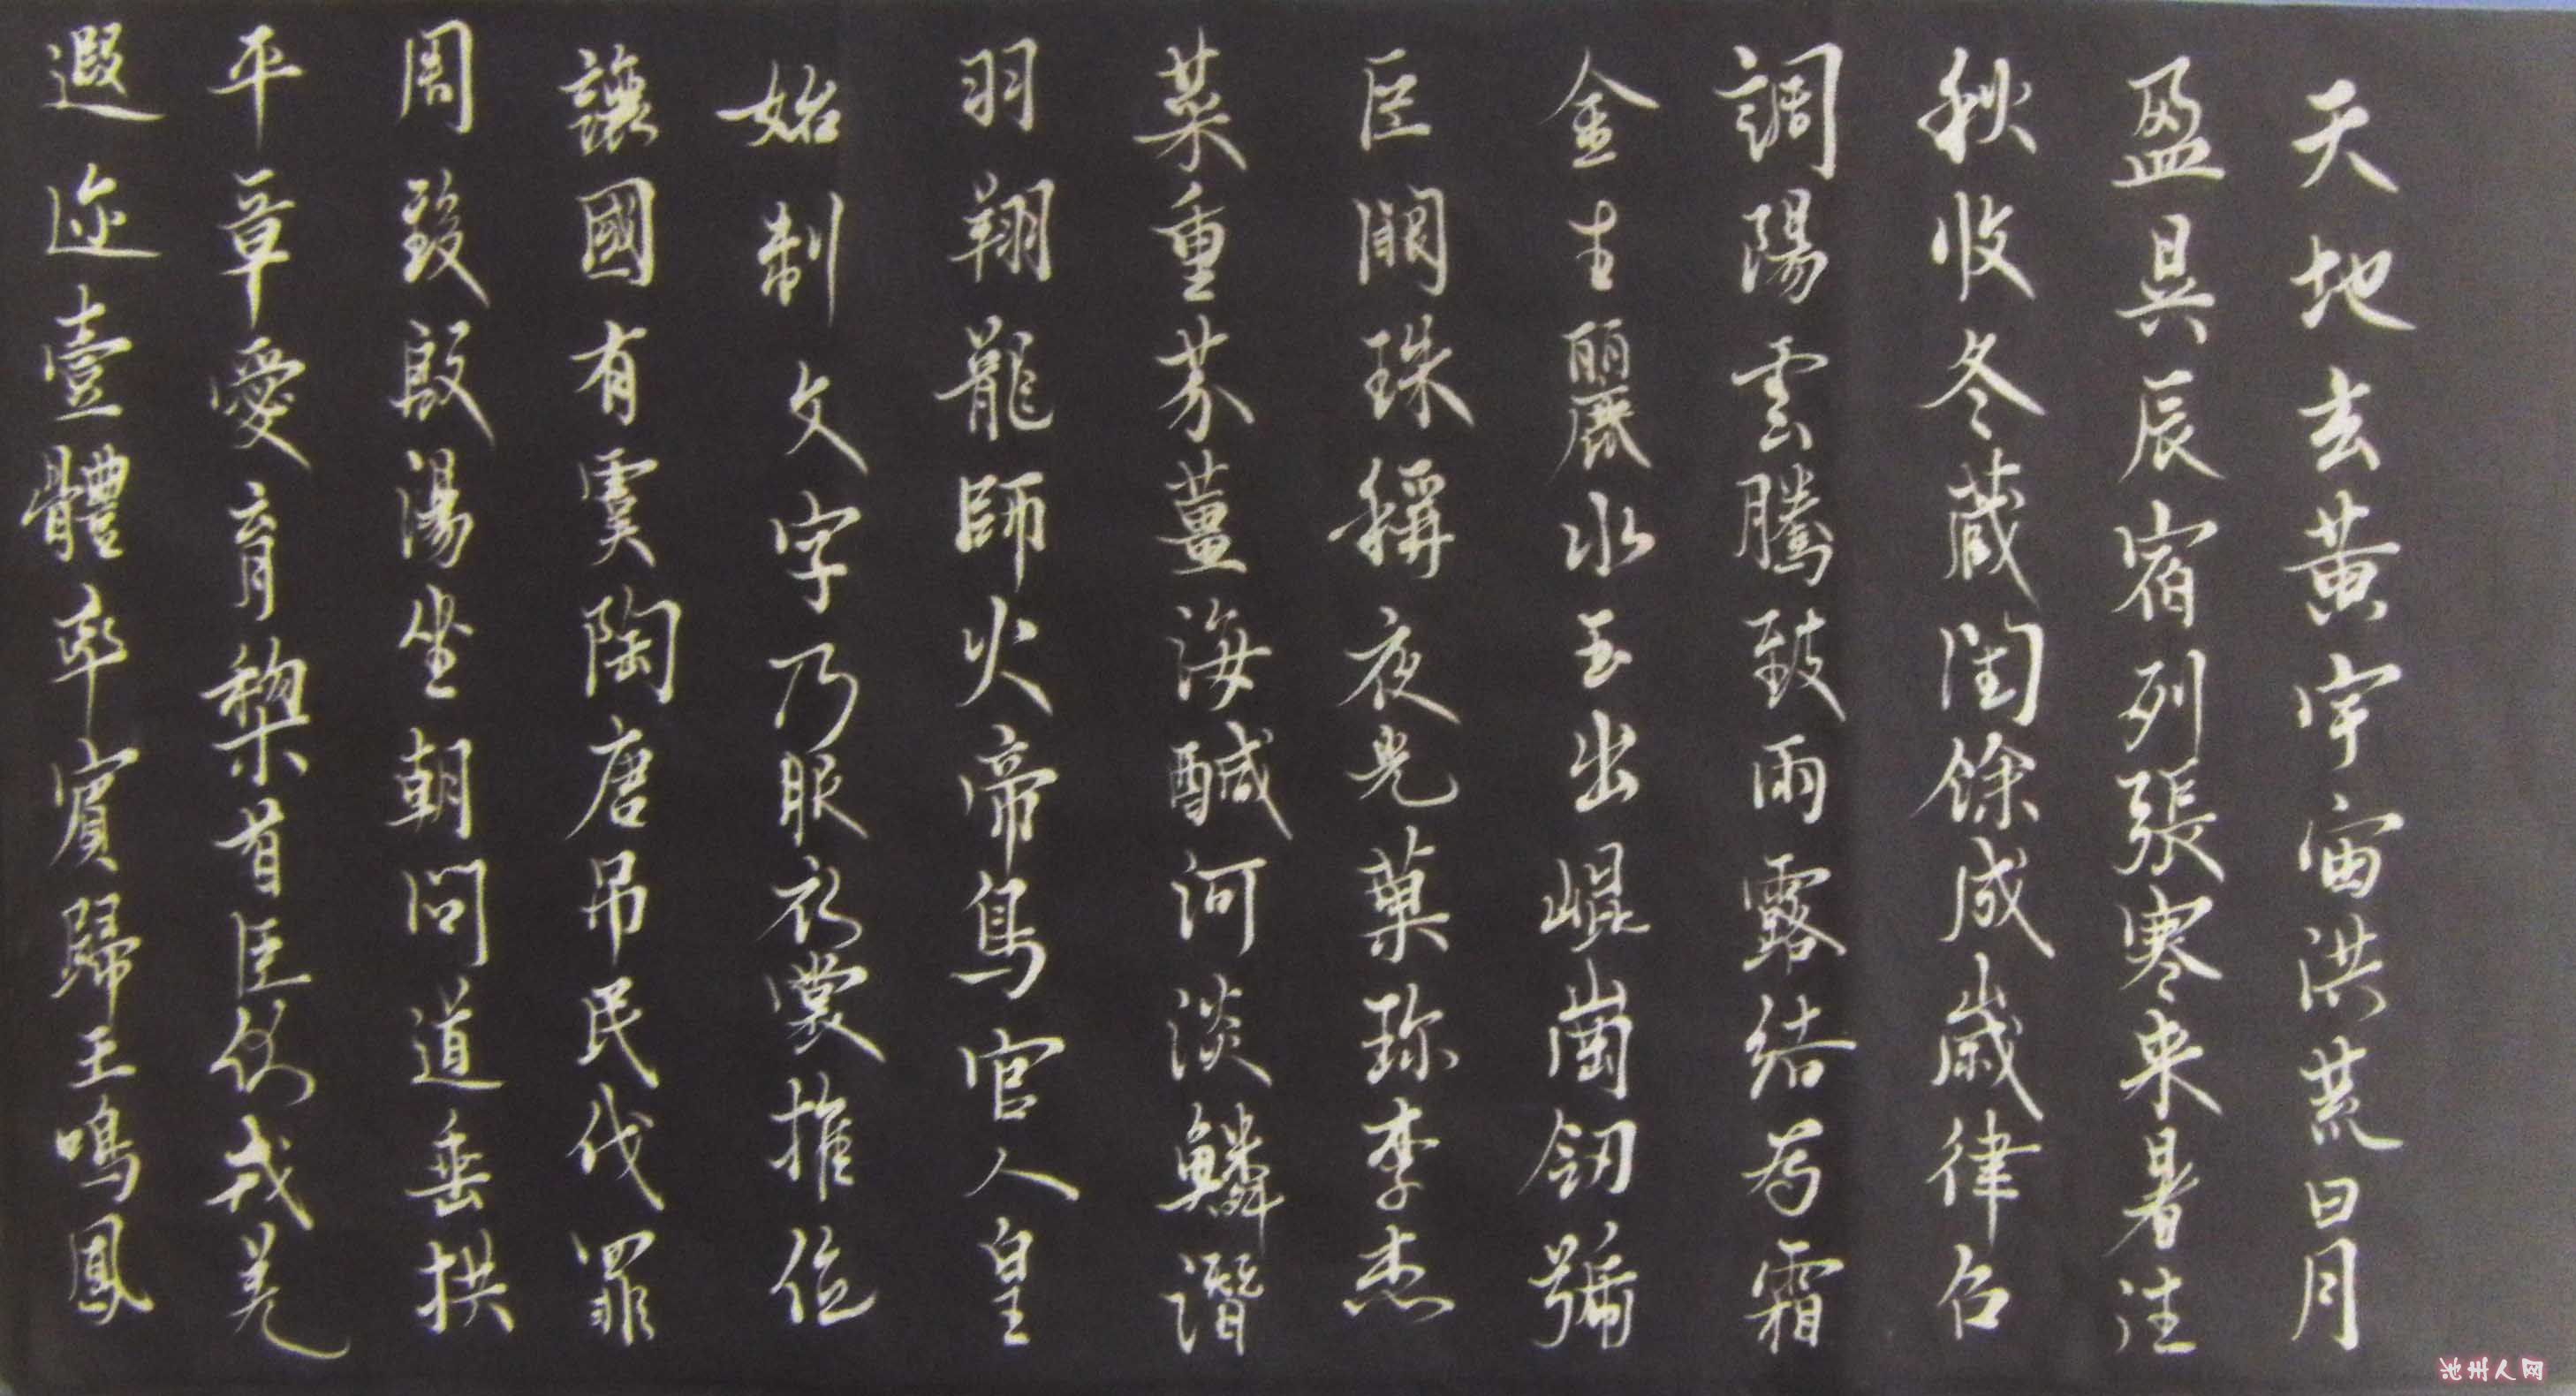 天地玄黃宇宙洪荒日月
盈昃辰宿列張寒来暑往
秋收冬蔵閏餘成歲律召
調陽雲騰致雨露結為霜
金生麗水玉出崐崗劒號
巨闕珠稱夜光菓珍李柰
菜重芥薑海醎河淡鱗潛
羽翔龍師火帝鳥官人皇
始制文字乃服衣裳推位
讓國有虞陶唐吊民伐罪
周發殷湯坐朝問道垂拱
平章愛育黎首臣伏戎羌
遐迩壹體率賓歸王鳴鳳
池州人网